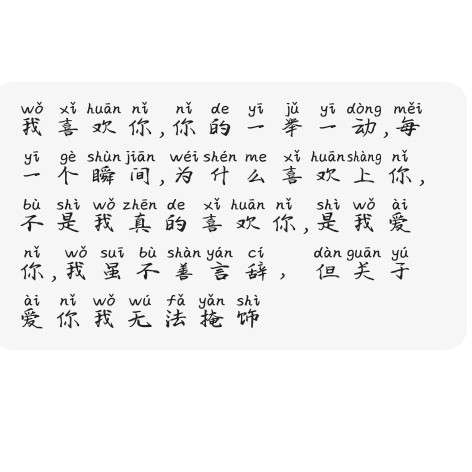 wǒ xǐ huān nǐ nǐ de yī jǔ yī dòng měi
我喜欢你,你的一举一动,每
yī gè shùn jiān wéi shén me xǐ huān shàng nǐ
一个瞬间,为什么喜欢上你,
bù shì wǒ zhēn de xǐ huān nǐ shì wǒ ài
不是我真的喜欢你,是我爱
nǐ wǒ suī bù shàn yán cí dàn guān yú
你,我虽不善言辞, 但关于
ài nǐ wǒ wú fǎ yǎn shì
爱你我无法掩饰